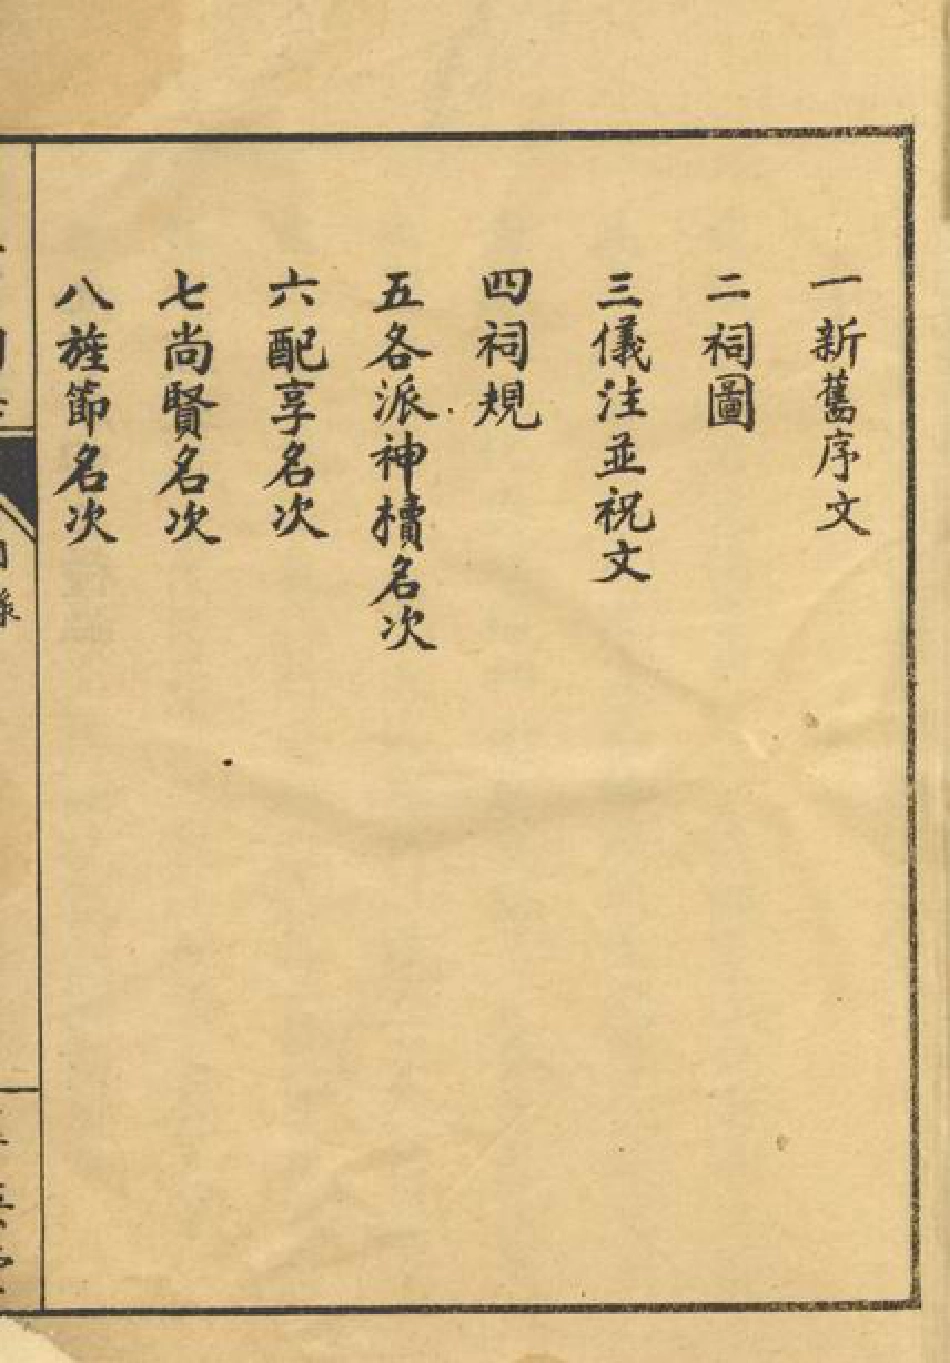 一新舊序文
二祠圖
三儀注並祝文
四祠規
五各派神櫝名次
六配享名次
七尚賢名次
八旌節名次